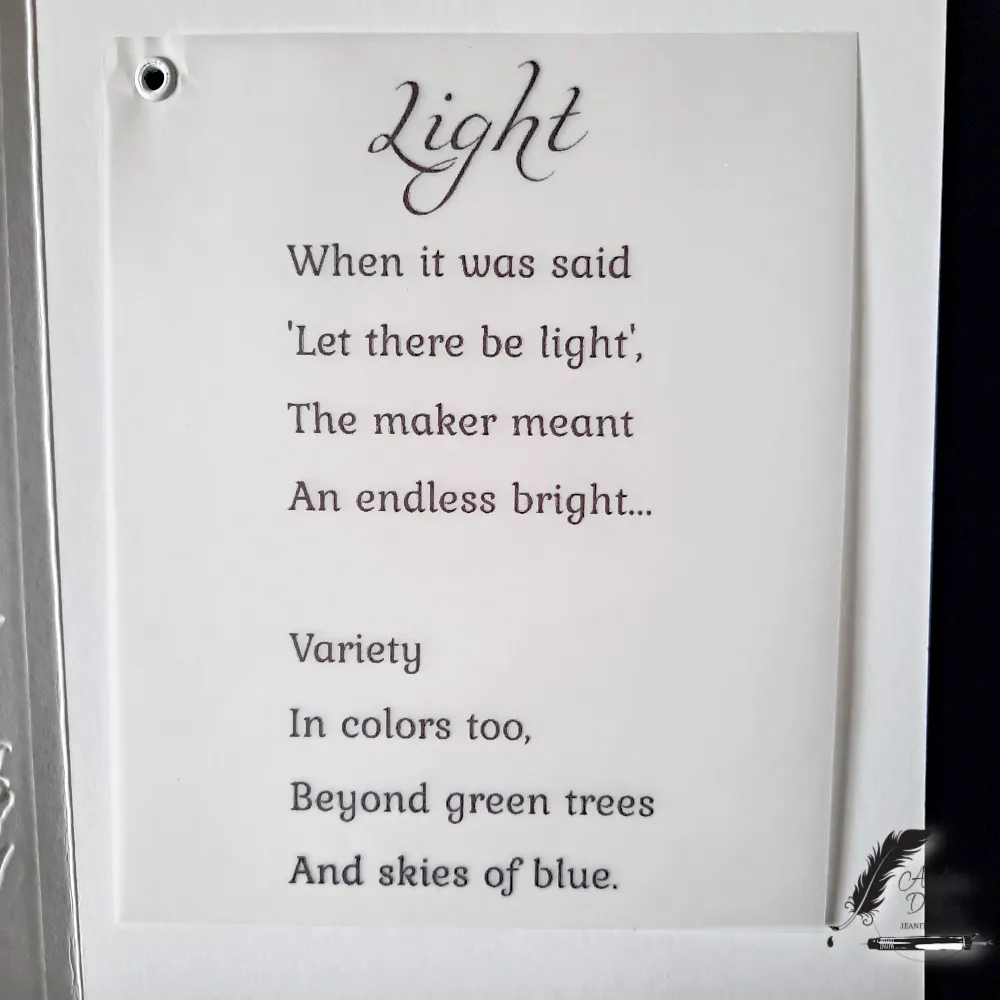 Light
When it was said
'Let there be light',
The maker meant
An endless bright...
Variety
In colors too,
Beyond green trees
And skies of blue.